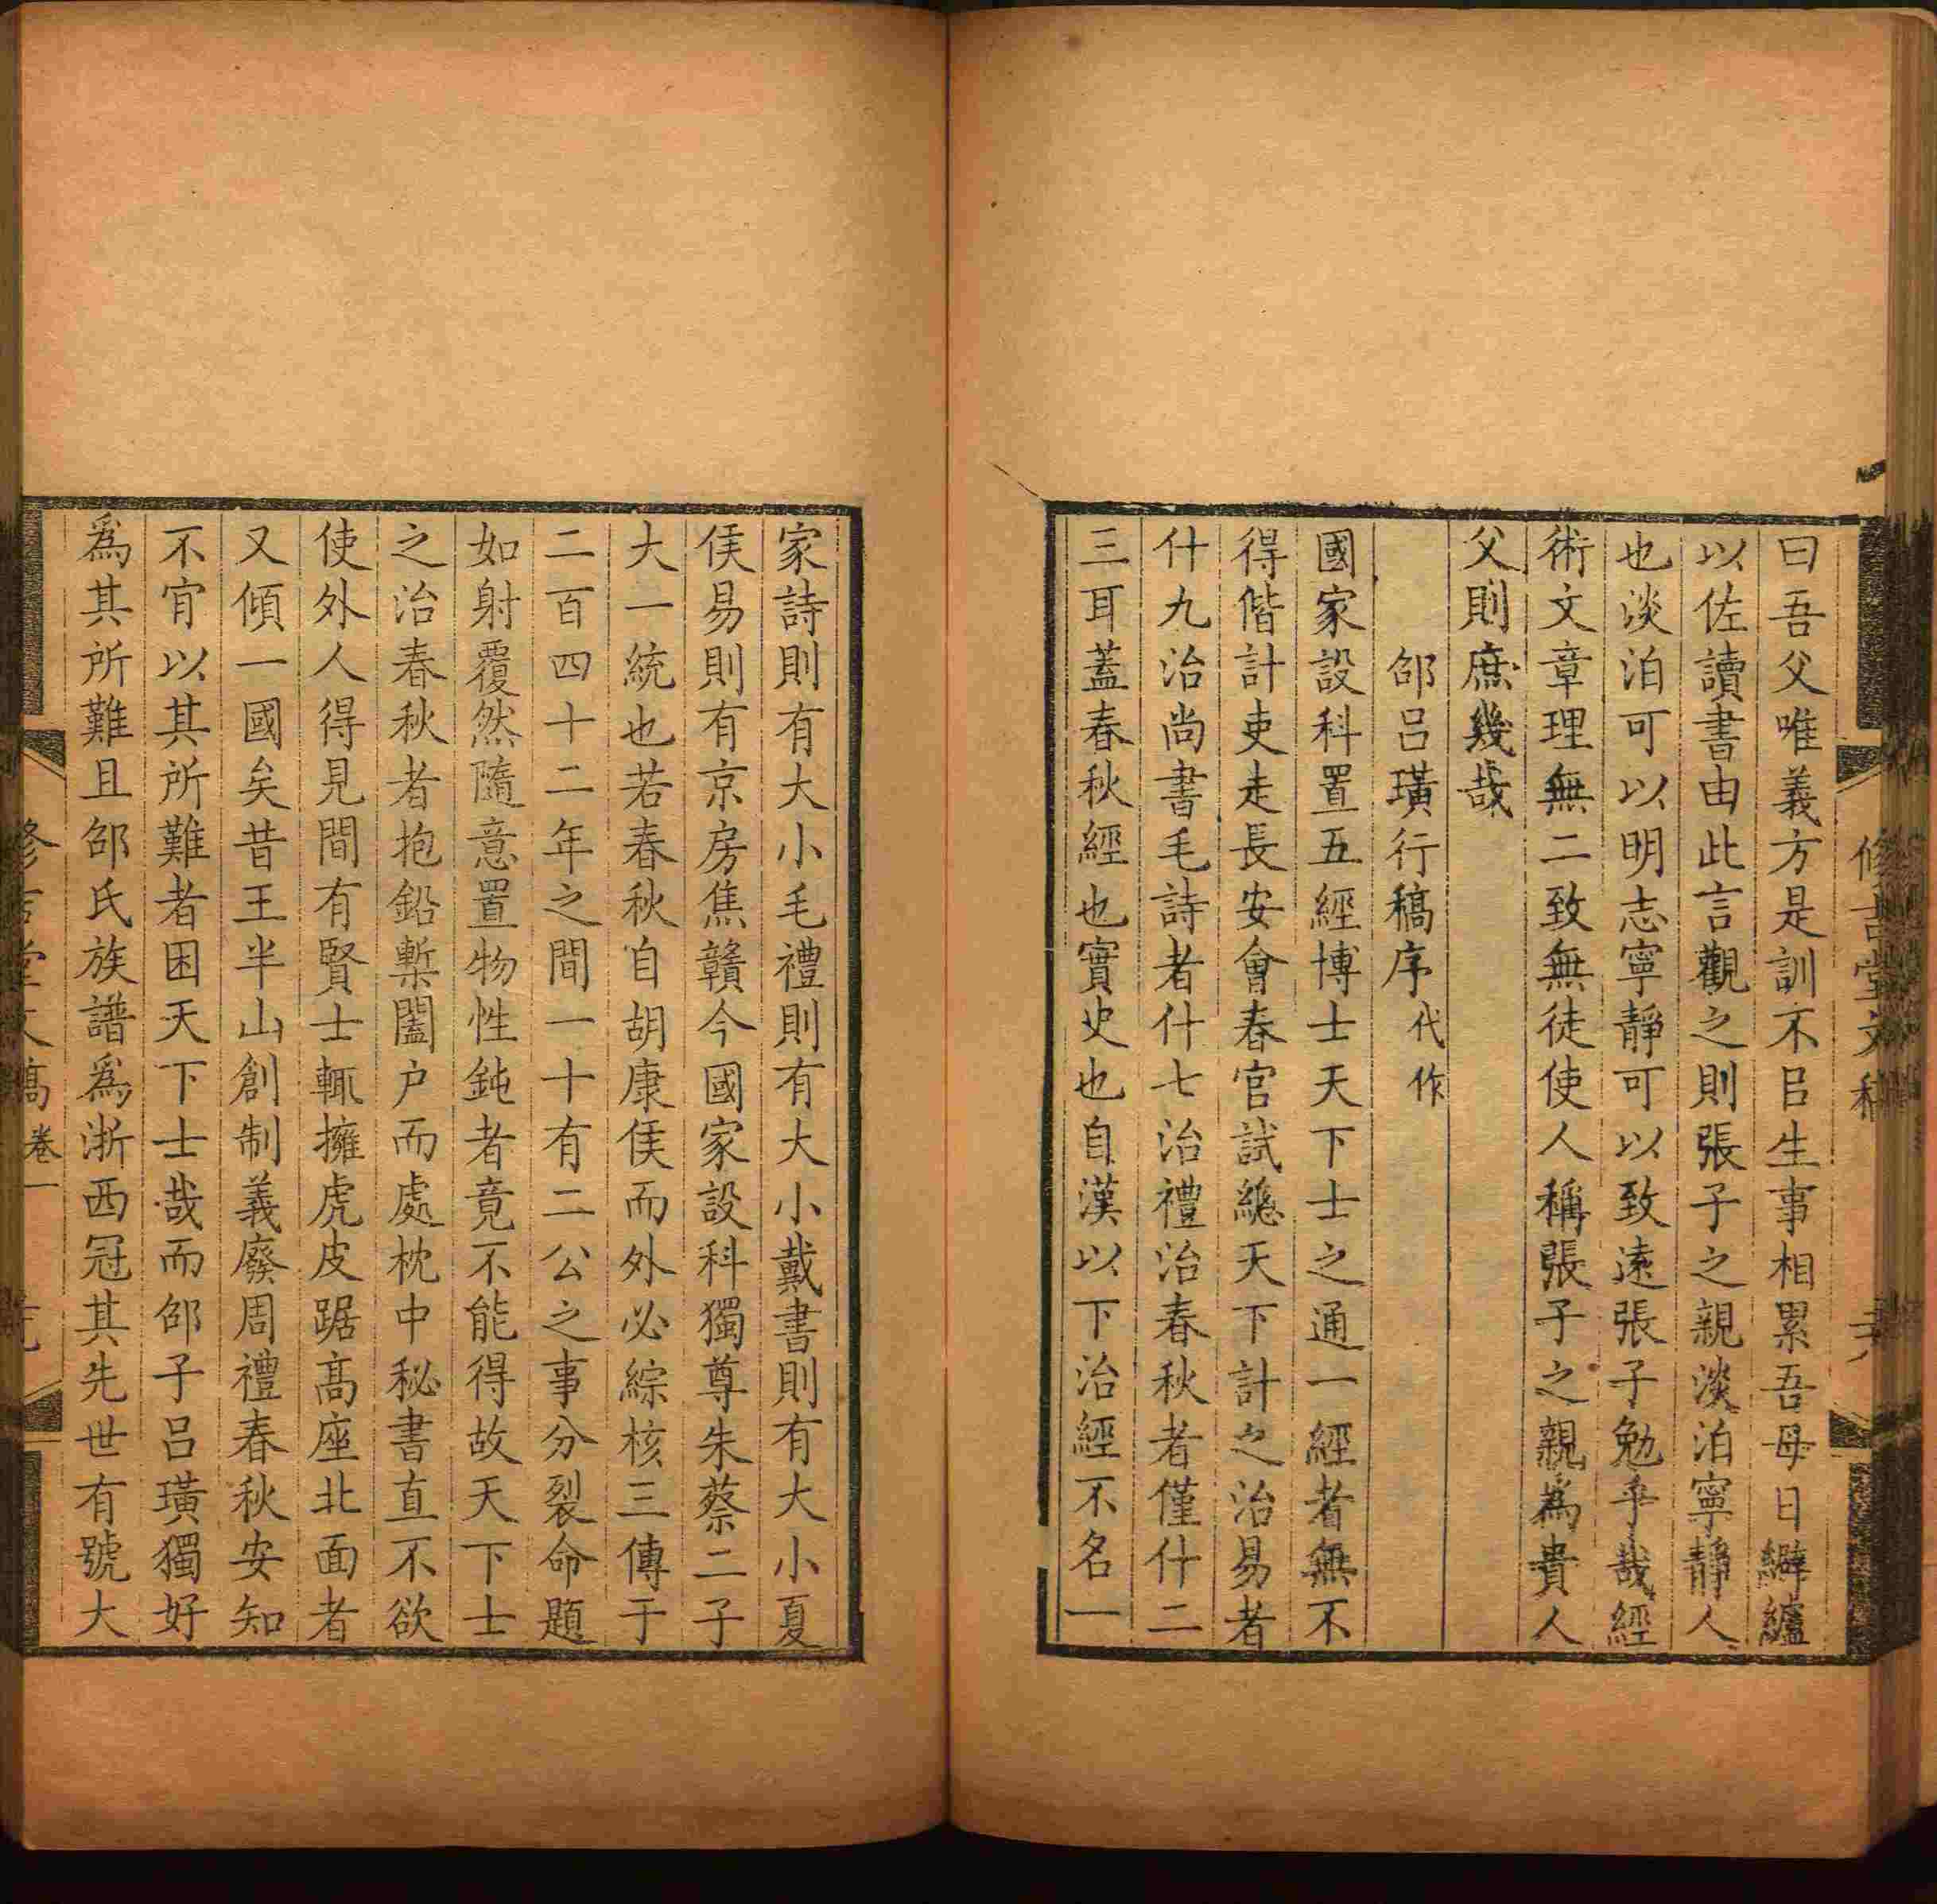 曰吾父唯義方是訓不㠯生事相累吾母日繲纑
以佐讀書由此言觀之則張子之親淡泊寧靜人
也淡泊可以明志寧靜可以致遠張子勉乎哉經
術文章理無二致無徒使人稱張子之親為貴人
父則庶幾哉
邵呂璜行稿序 代作
國家設科置五經博士天下士之通一經者無不
得偕計吏走長安會春官試緫天下計之治易者
什九治尚書毛詩者什七治禮治春秋者僅什二
三耳蓋春秋經也實史也自漢以下治經不名一
家詩則有大小毛禮則有大小戴書則有大小夏
侯易則有京房焦贛今國家設科獨尊朱蔡二子
大一統也若春秋自胡康侯而外必綜核三傳于
二百四十二年之間一十有二公之事分裂命題
如射覆然隨意置物性鈍者竟不能得故天下士
之治春秋者抱鉛槧闔户而處枕中秘書直不欲
使外人得見間有賢士輒擁虎皮踞髙座北面者
又傾一國矣昔王半山創制義廢周禮春秋安知
不宵以其所難者困天下士哉而邵子呂璜獨好
爲其所難且邵氏族譜爲浙西冠其先世有號大
修吉堂文稿 卷一